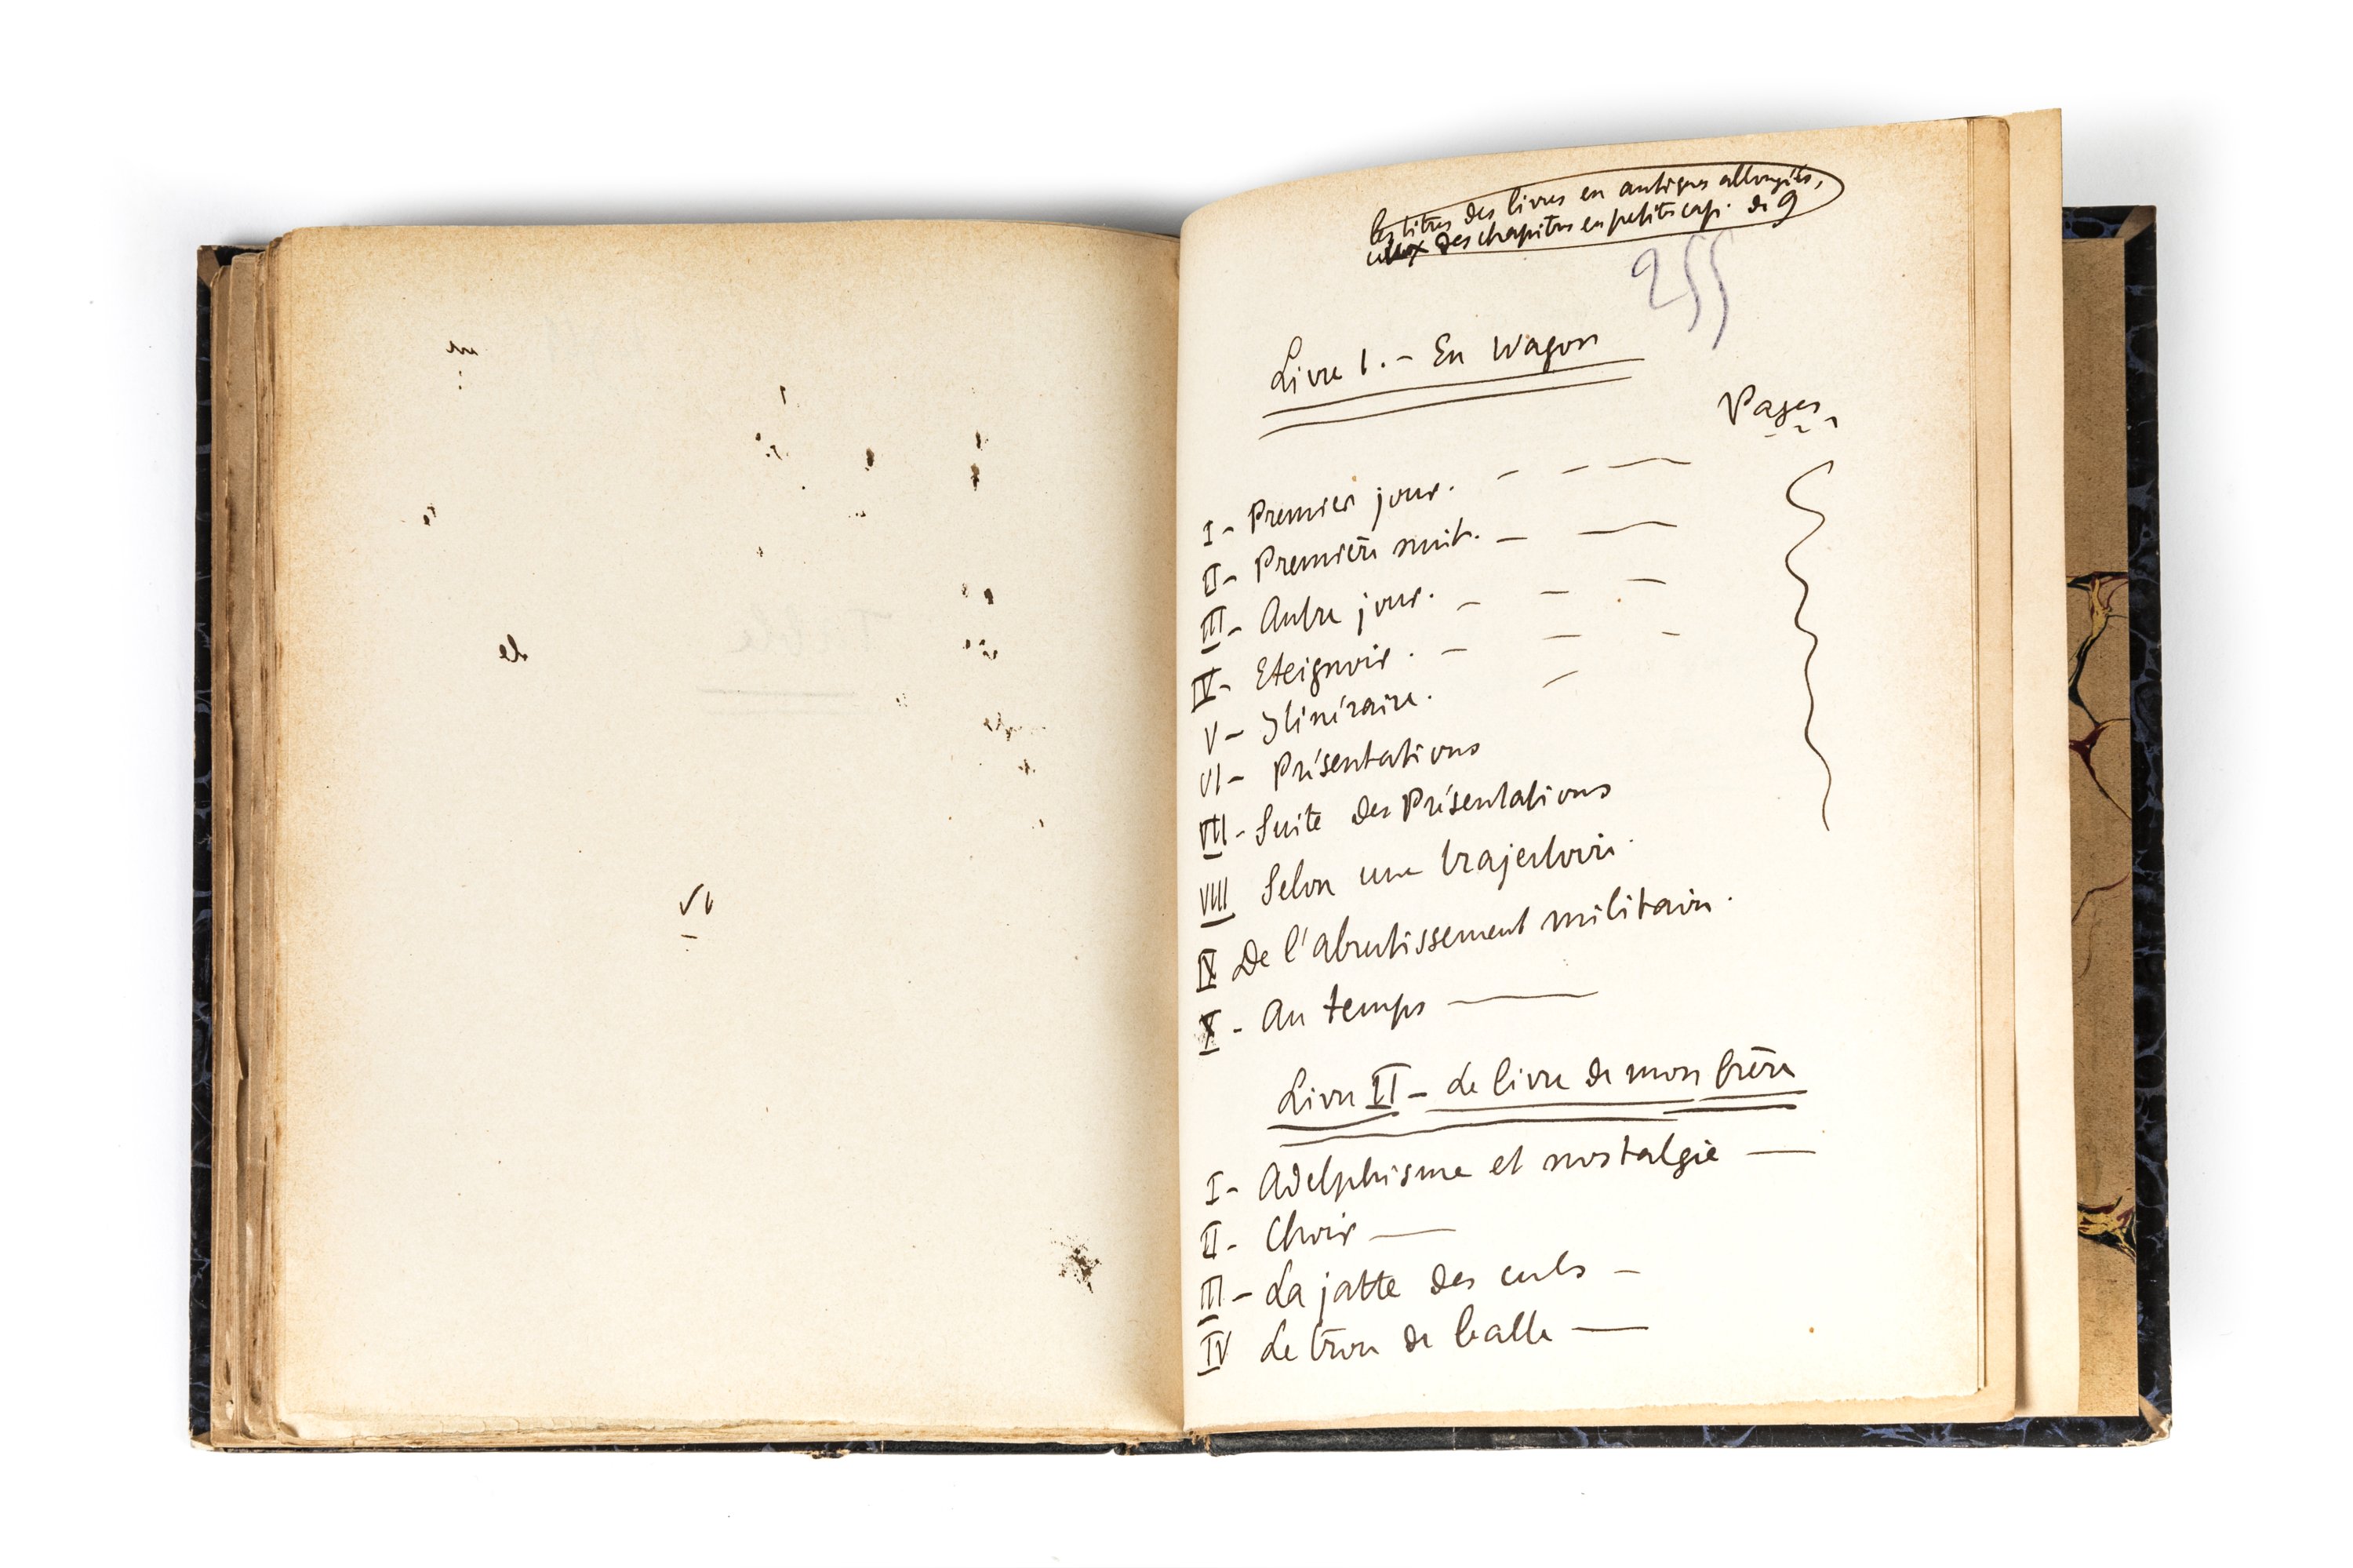 les titres des livres en antiques allongées,
ceux des chapitres en petites cap. de 9
255
Livre I. - En Wagon
Pages
I - Premier jour.
II - Première nuit.
III - Autre jour.
IV - Eteignoir.
V - Itinéraire.
VI - Présentations
VII - Suite des Présentations
VIII Selon une trajectoire.
IX De l'abrutissement militaire.
X - Au temps
Livre II - Le livre de mon frère
I - Adelphisme et nostalgie
II - Choir
III - La jatte des culs
IV Le trou de balle